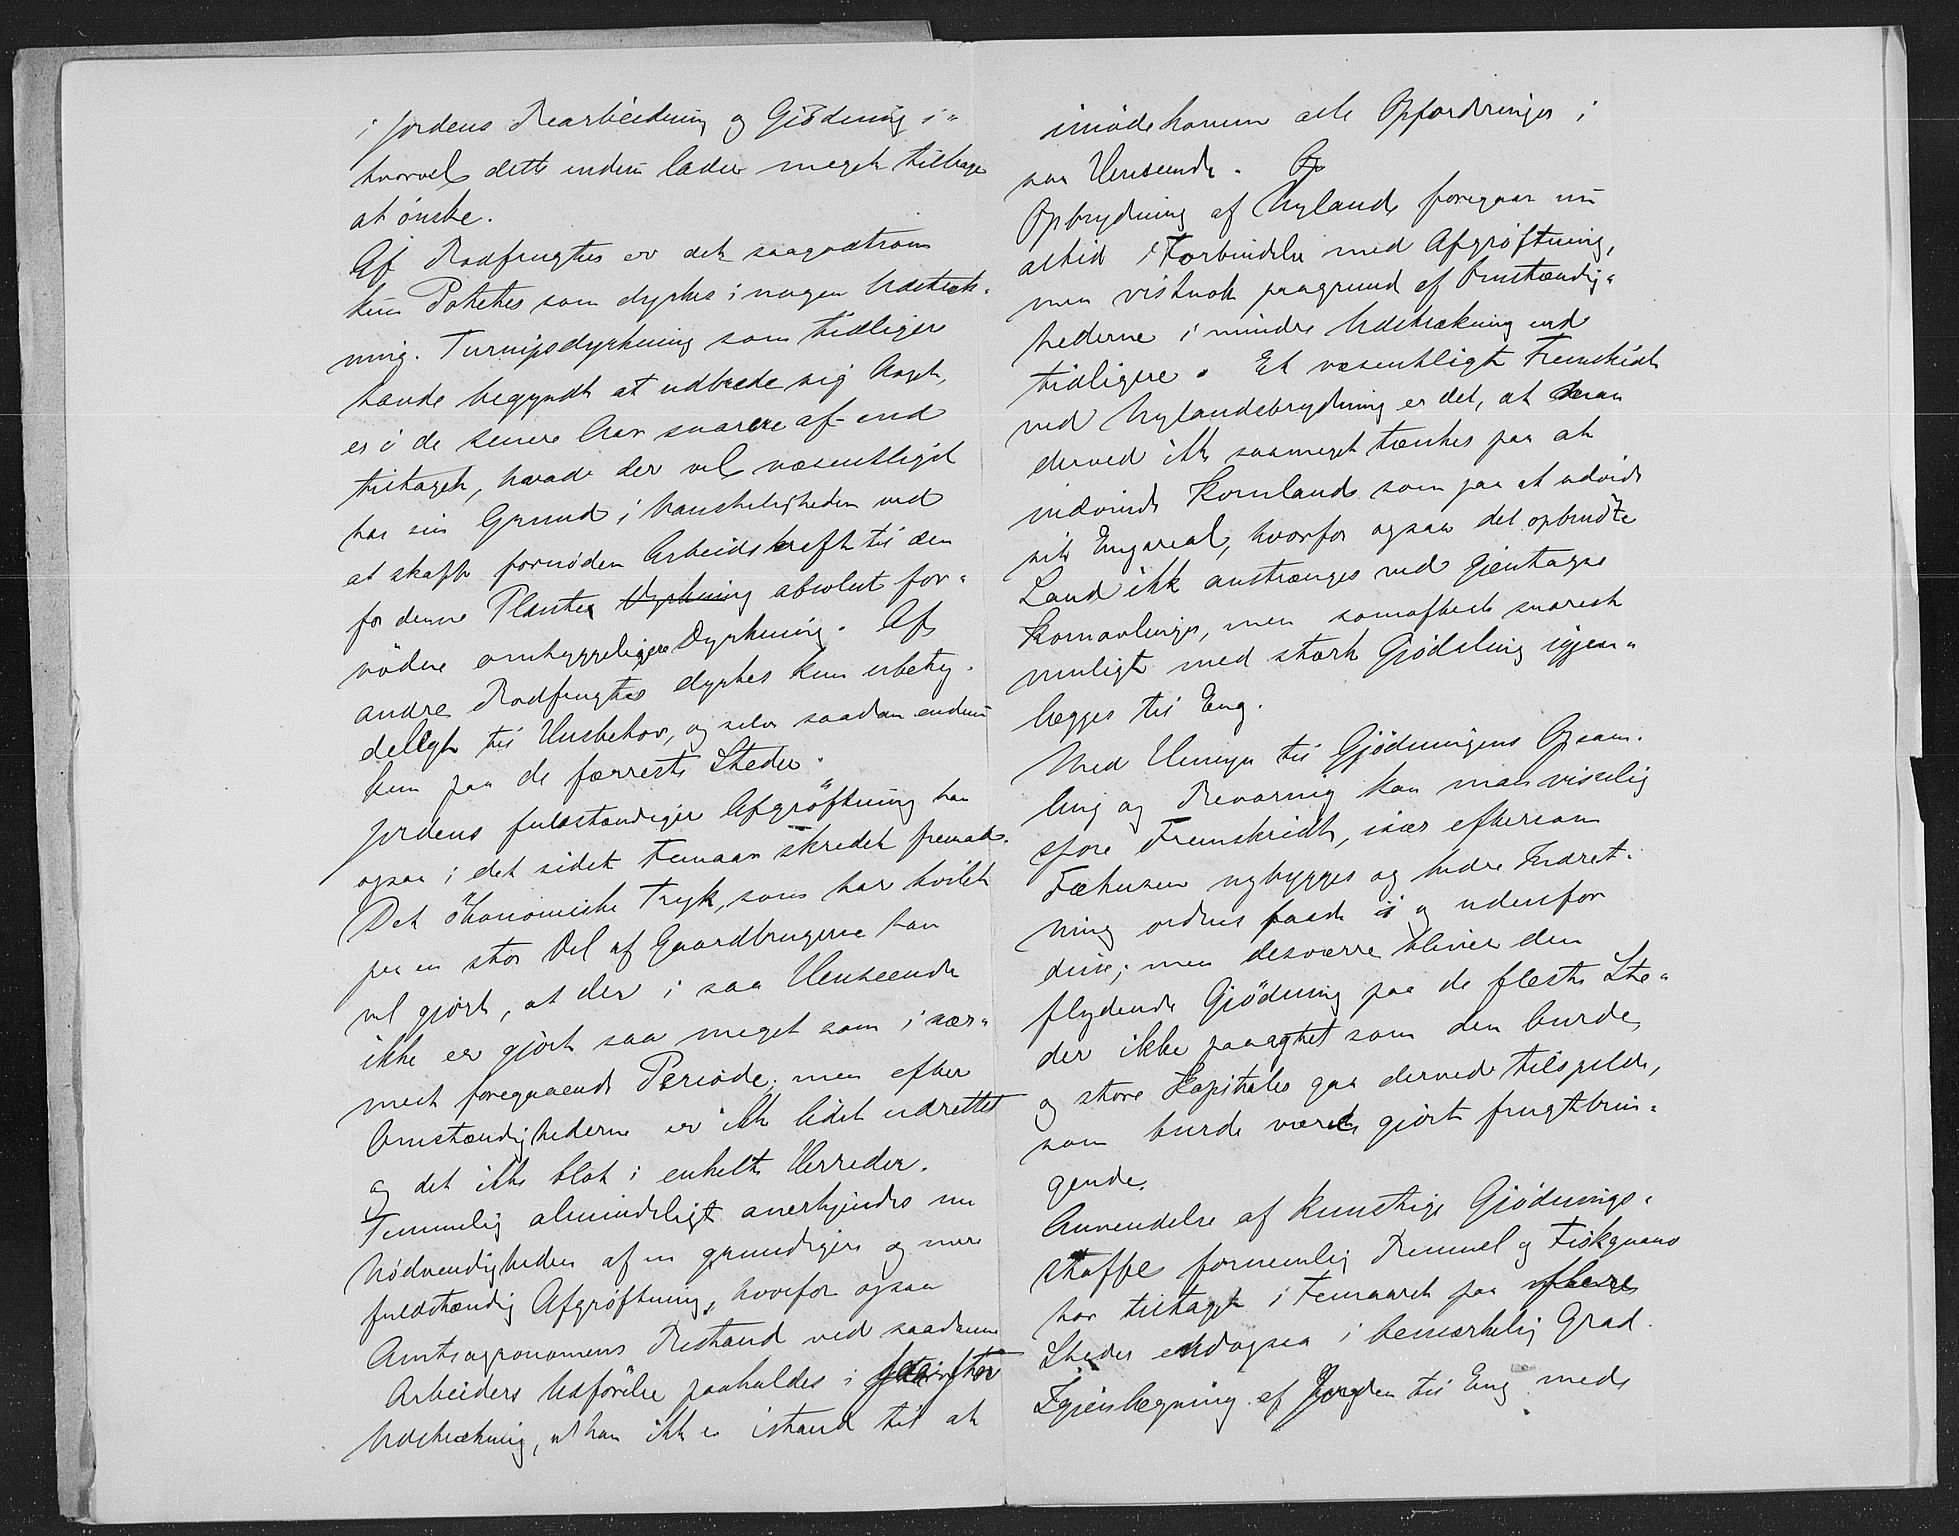 i Jordens Bearbeidning og Gjødning i-
hvorvel dette endnu lader meget tilbage
at ønske.
Af Rodfrugter er det saagodtsom
kun Poteter som dyrkes i nogen Udstræk-
ning. Turnipsdyrkning som tidligere
havde begyndt at udbrede sig Noget,
er i de senere Aar snarere af- end
tiltaget, hvade der vel væsentligst
har sin Grund i Vanskeligheden ved
at skaffe fornøden Arbeidskraft til den
for denne Plante Dyrkning absolut for-
nødne omhyggeligere Dyrkning. Af
andre Rodfrugter dyrkes kun ubety-
deligt til Husbehov, og selv saadan endnu
kun paa de færreste Steder.
Jordens fuldstændigere Afgrøftning har
ogsaa i det sidst Femaar skredet fremad.
Det økonomiske Tryk, som har hvilet
paa en stor Del af Gaardbrugerne har
vel gjort, at der i saa Henseende
ikke er gjort saa meget som i nær-
mest foregaaende Periode; men efter
Omstændighederne er ikke lidet udrettet
og det ikke blot i enkelte Herreder.
Temmelig almindeligt anerkjendes nu
Nødvendigheden af en grundigere og mere
fuldstændig Afgrøftning, hvorfor ogsaa
Amtsagronomens Bistand ved saadanne
Arbeiders Udførelse paakaldes i stor
Udstrækning, at han ikke er istand til at
imødekomme alle Opfordringer i
saa Henseende. Op
Opbrydning af Nyland foregaar nu
altid i Forbindelse med Afgrøftning,
men vistnok paagrund af Omstændig-
hederne i mindre Udstrækning end
tidligere. Et væsentligt Fremskridt
ved Nylandsbrydning er det, at man
derved ikke saameget tænker paa at
indvinde Kornland som paa at udvide
sit Engareal, hvorfor ogsaa det opbrudte
Land ikke anstrænges ved gjentagne
Kornavlinger, men somoftest snarest
muligt med stærk Gjødsling igjen-
lægges til Eng.
Med Hensyn til Gjødningens Opsam-
ling og Bevaring kan man visselig
spore Fremskridt, især eftersom
Fæhusene nybygges og bedre Indret-
ning ordnes baade i og udenfor
disse; men desværre bliver den
flydende Gjødning paa de fleste Ste-
der ikke paaagtet som den burde,
og store Kapitaler gaa derved tilspilde,
som burde været gjort frugtbrin-
gende.
Anvendelse af kunstige Gjødnings-
stoffe fornemlig Benmel og Fiskguano
har tiltaget i Femaaret paa flere
Steder endogsaa i bemærkelig Grad.
Igjenlægning af Jorden til Eng med